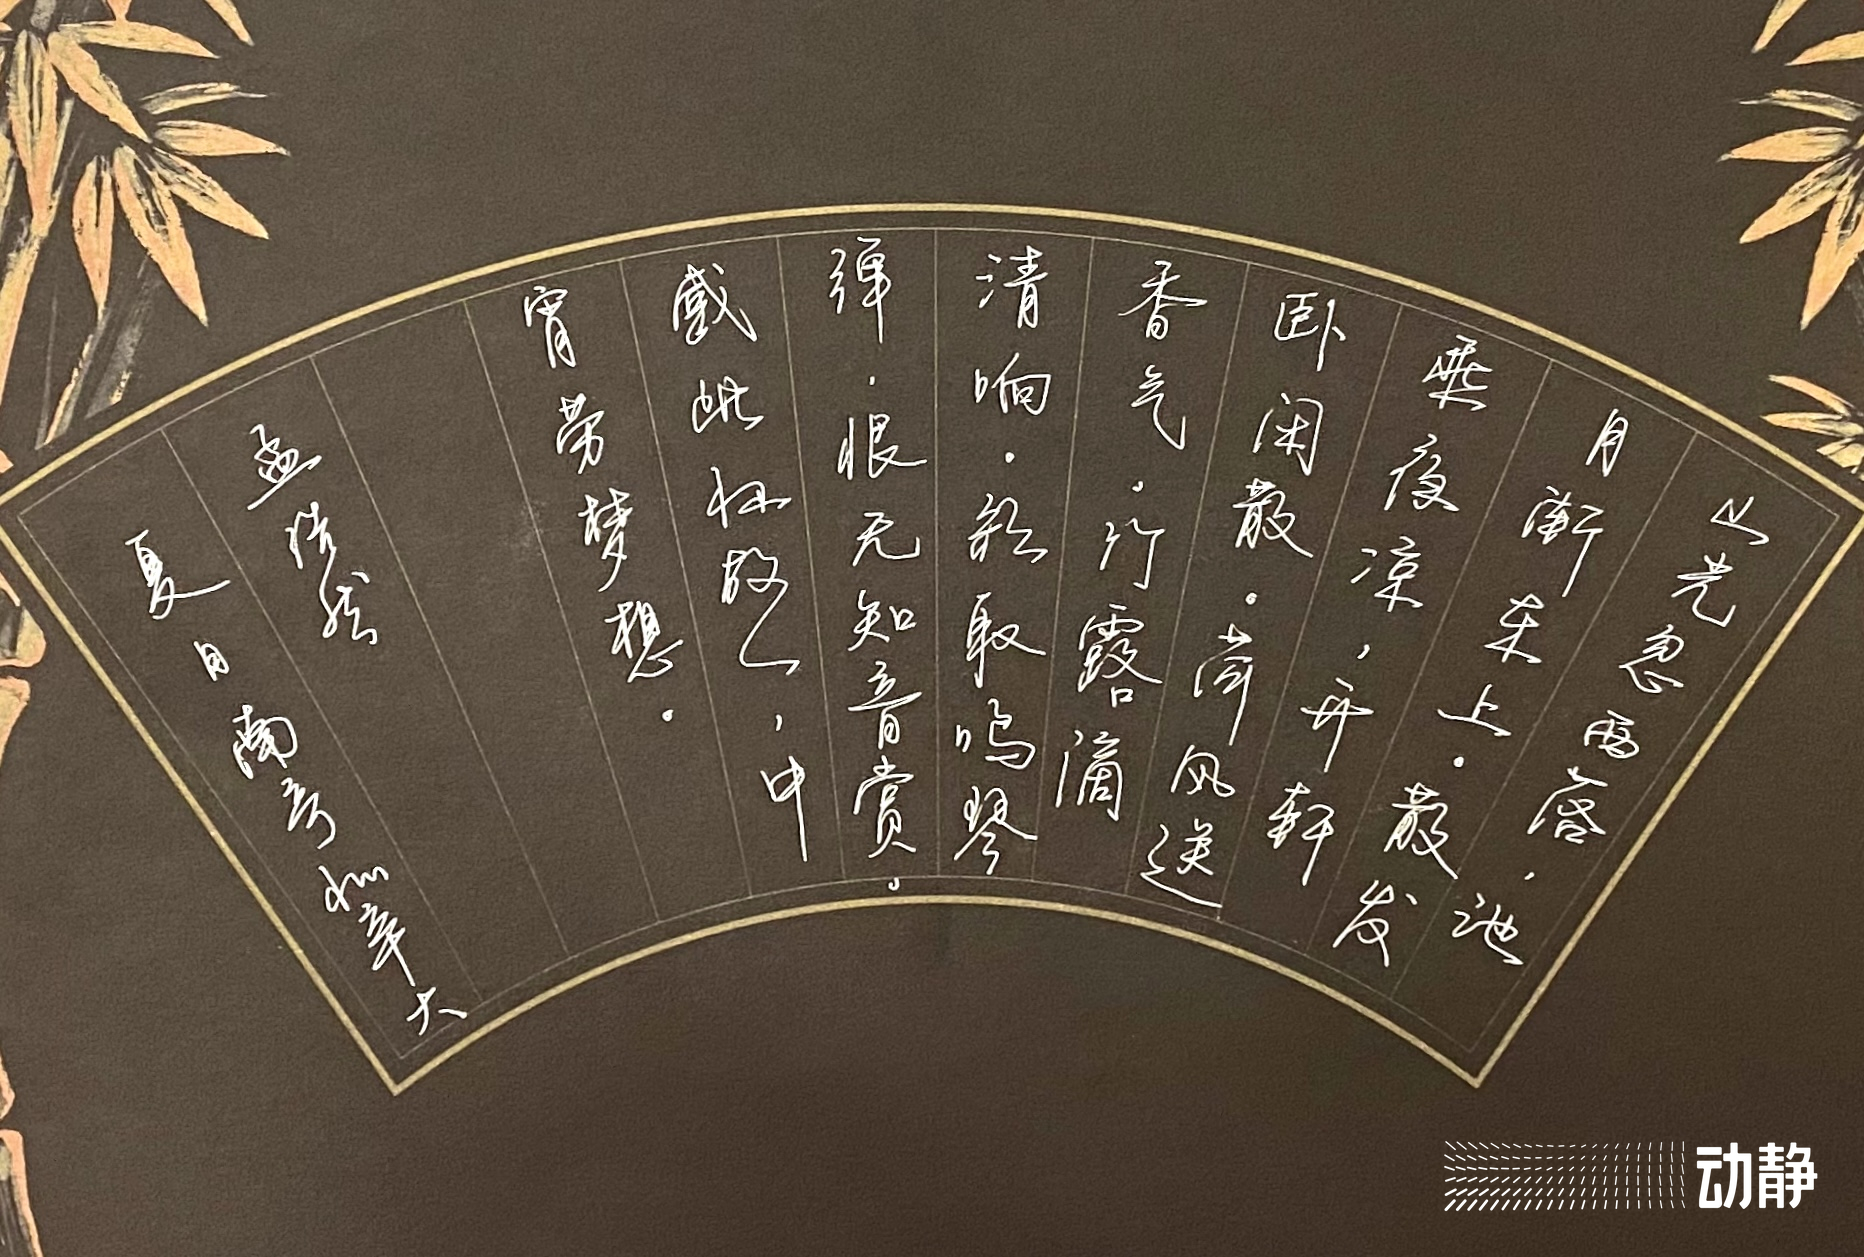 山光忽西落，池
月渐东上。散发
乘夜凉，开轩
卧闲散。荷风送
香气。竹露滴
清响。欲取鸣琴
弹。恨无知音赏。
感此怀故人，中
宵劳梦想。
孟浩然
夏日南亭怀辛大
动静